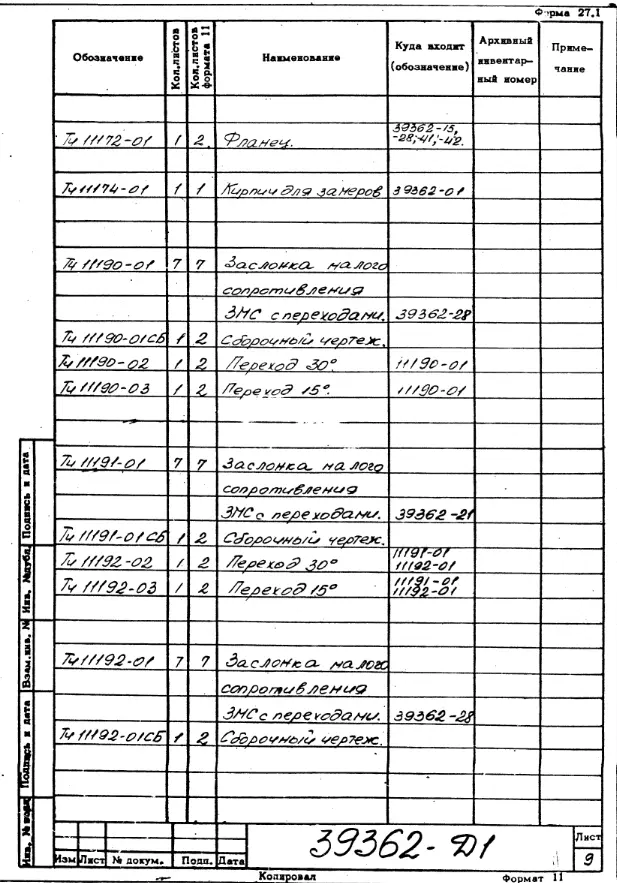 Форма 27.1
Обозначение Кол.листов Кол.листов формата 11 Наименование Куда входит (обозначение) Архивный инвентар- ный номер Приме- чание
39362-15,
Тч 11172-01 1 2. Фланец. -28,-41,-42.
Тч 11174-01 1 1 Кирпич для замеров 39362-01
Тч 11190-01 7 7 Заслонка малого
сопротивления
ЗМС с переходами. 39362-28
Тч 11190-01СБ 1 2 Сборочный чертеж.
Тч 11190-02 1 2 Переход 30° 11190-01
Тч 11190-03 1 2 Переход 15°. 11190-01
Тч 11191-01 7 7 Заслонка малого
сопротивления
ЗМС с переходами. 39362-21
Тч 11191-01СБ 1 2 Сборочный чертеж.
11191-01
Тч 11192-02 1 2 Переход 30° 11192-01
11191-01
Тч 11192-03 1 2 Переход 15° 11192-01
Тч 11192-01 7 7 Заслонка малого
сопротивления
ЗМС с переходами. 39362-28
Тч 11192-01СБ 1 2 Сборочный чертеж.
Инв. № подл Подпись и дата Взам.инв. № Инв. №дубл. Подпись и дата
39362-Д1
Лист
9
Изм Лист № докум. Подп. Дата
Копировал Формат 11